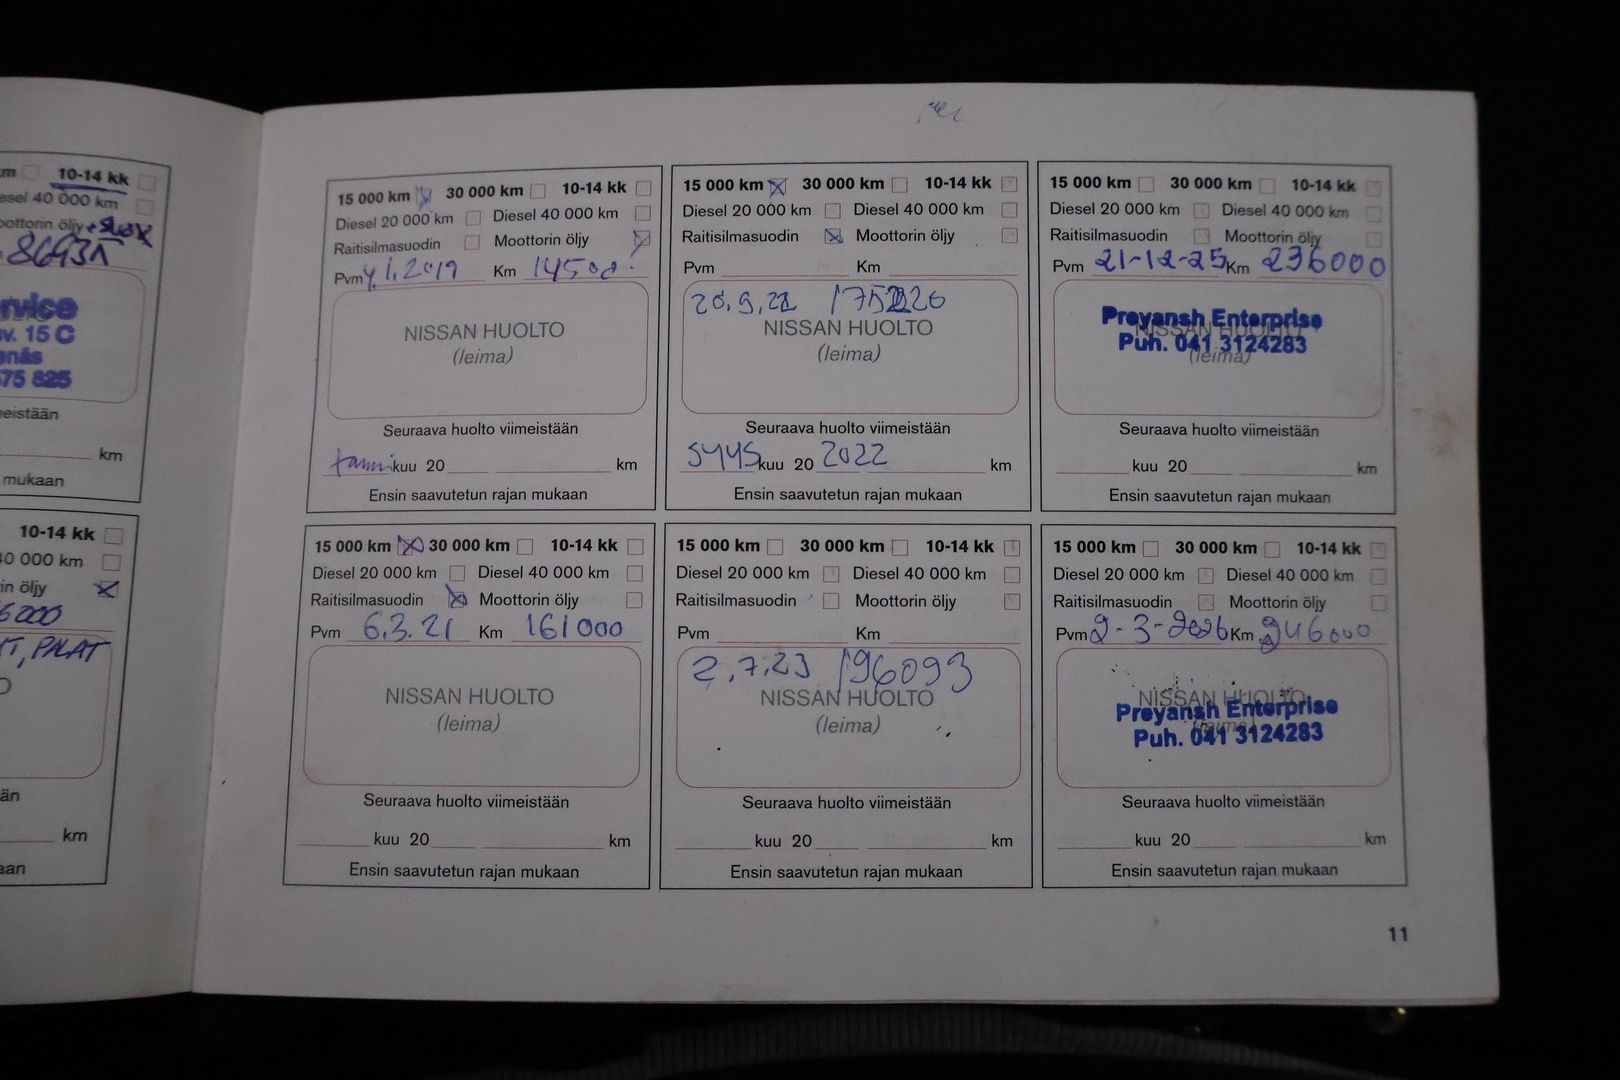 m 10-14 kk
esel 40 000 km
oottorin öljy
86931
rvice
v. 15 C
enäs
575 625
eistään
km
mukaan
10-14 kk
40 000 km
in öljy
6000
T, PALAT
än
km
aan
15 000 km 30 000 km 10-14 kk
Diesel 20 000 km Diesel 40 000 km
Raitisilmasuodin Moottorin öljy
Pvm 4.1.2019 Km 14500
NISSAN HUOLTO
(leima)
Seuraava huolto viimeistään
tammi kuu 20 km
Ensin saavutetun rajan mukaan
15 000 km 30 000 km 10-14 kk
Diesel 20 000 km Diesel 40 000 km
Raitisilmasuodin Moottorin öljy
Pvm Km
20.9.21
NISSAN HUOLTO
(leima)
Seuraava huolto viimeistään
SYYS kuu 20 2022 km
Ensin saavutetun rajan mukaan
15 000 km 30 000 km 10-14 kk
Diesel 20 000 km Diesel 40 000 km
Raitisilmasuodin Moottorin öljy
Pvm 21-12-25 Km 236000
Preyansh Enterprise
NISSAN HUOLTO
Puh. 041 3124283
(leima)
Seuraava huolto viimeistään
kuu 20 km
Ensin saavutetun rajan mukaan
15 000 km 30 000 km 10-14 kk
Diesel 20 000 km Diesel 40 000 km
Raitisilmasuodin Moottorin öljy
Pvm 6.3.21 Km 161000
NISSAN HUOLTO
(leima)
Seuraava huolto viimeistään
kuu 20 km
Ensin saavutetun rajan mukaan
15 000 km 30 000 km 10-14 kk
Diesel 20 000 km Diesel 40 000 km
Raitisilmasuodin Moottorin öljy
Pvm Km
2.7.23 196093
NISSAN HUOLTO
(leima)
Seuraava huolto viimeistään
kuu 20 km
Ensin saavutetun rajan mukaan
15 000 km 30 000 km 10-14 kk
Diesel 20 000 km Diesel 40 000 km
Raitisilmasuodin Moottorin öljy
Pvm 2-3-2026 Km 246000
NISSAN HUOLTO
Preyansh Enterprise
(leima)
Puh. 041 3124283
Seuraava huolto viimeistään
kuu 20 km
Ensin saavutetun rajan mukaan
11